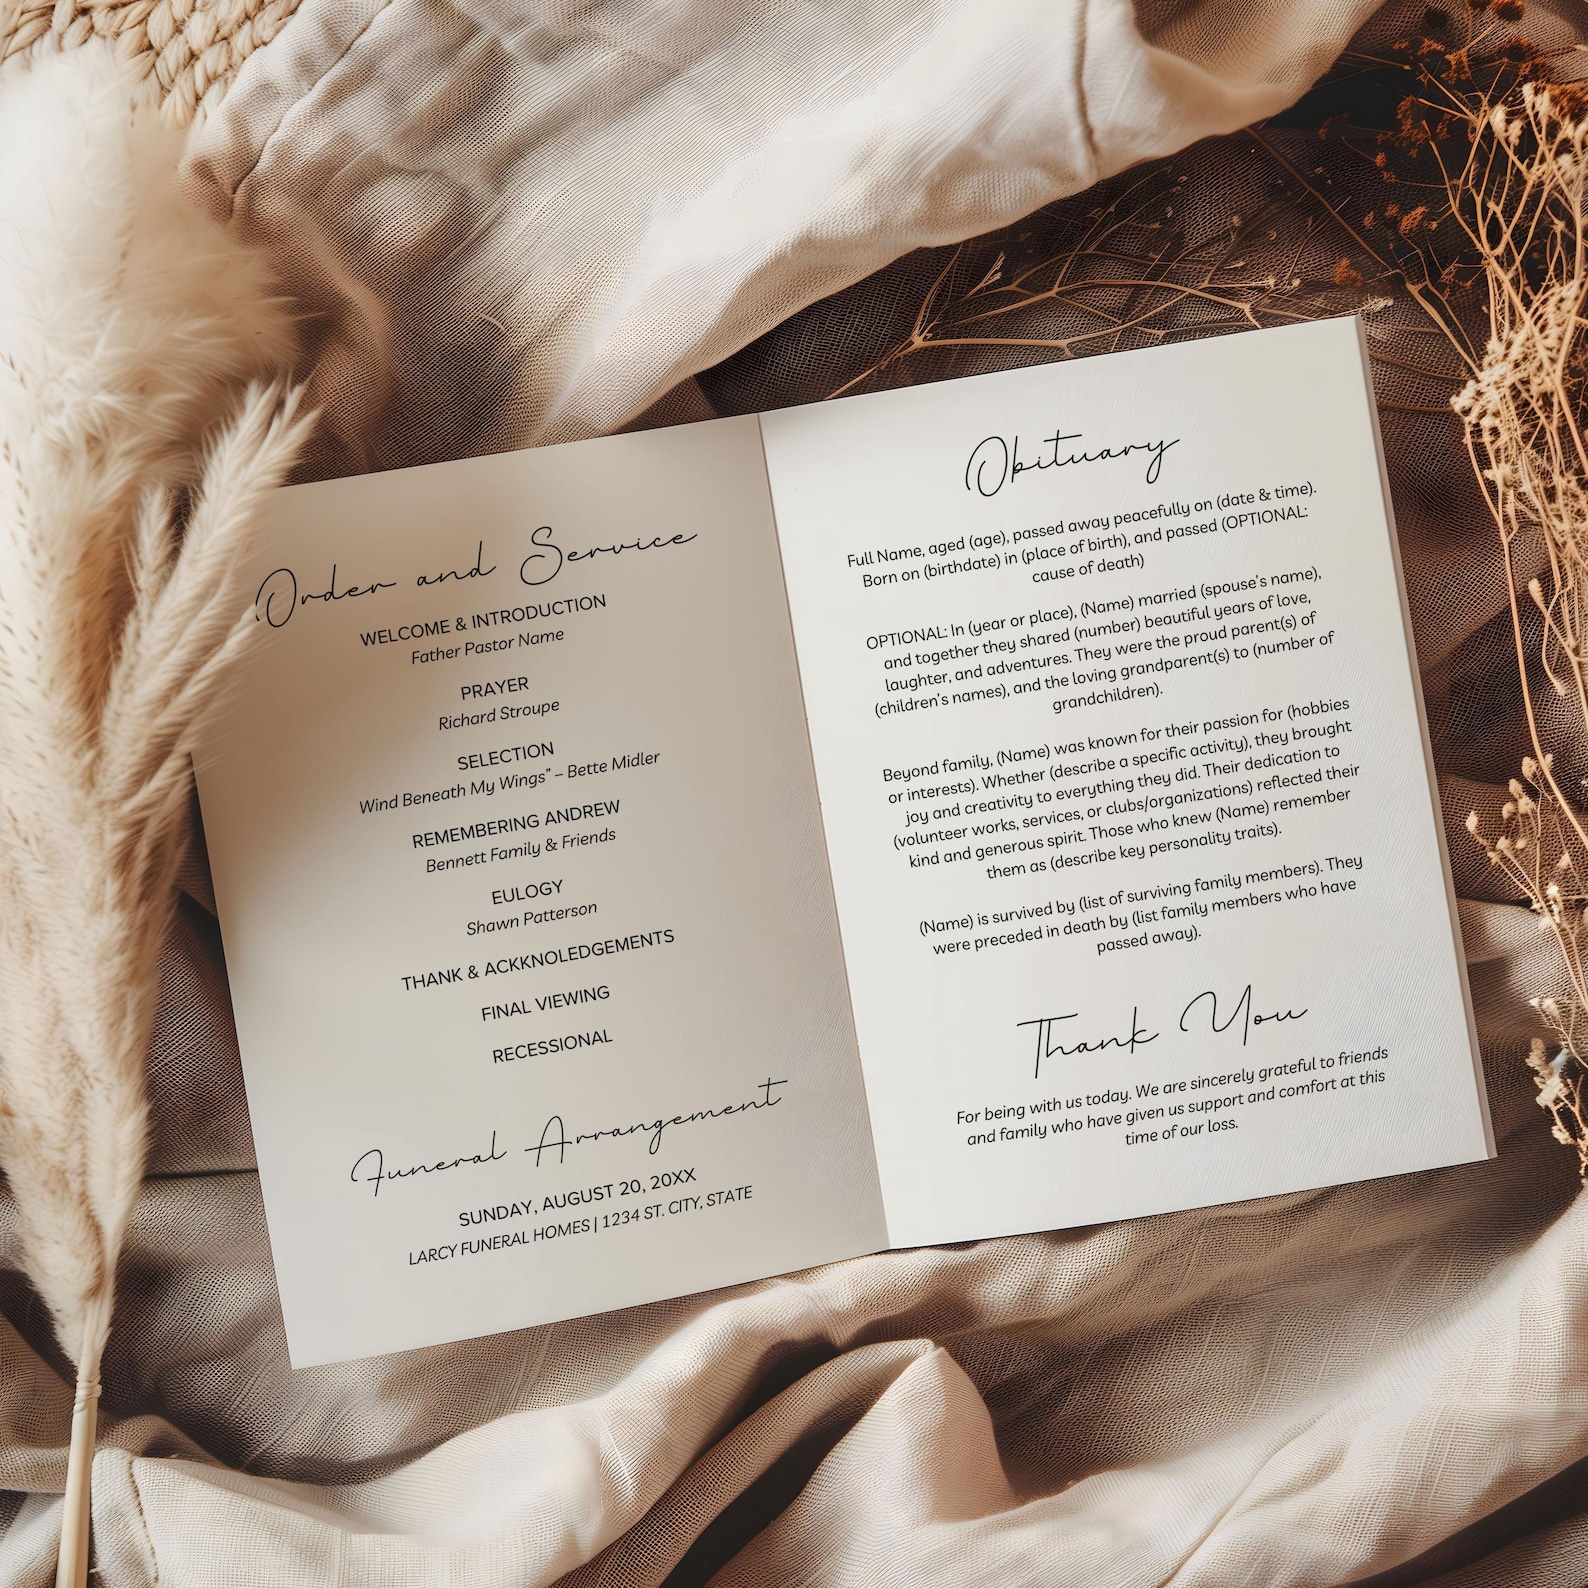 Order and Service
WELCOME & INTRODUCTION
Father Pastor Name
PRAYER
Richard Stroupe
SELECTION
Wind Beneath My Wings" – Bette Midler
REMEMBERING ANDREW
Bennett Family & Friends
EULOGY
Shawn Patterson
THANK & ACKKNOLEDGEMENTS
FINAL VIEWING
RECESSIONAL
Funeral Arrangement
SUNDAY, AUGUST 20, 20XX
LARCY FUNERAL HOMES | 1234 ST. CITY, STATE
Obituary
Full Name, aged (age), passed away peacefully on (date & time).
Born on (birthdate) in (place of birth), and passed (OPTIONAL:
cause of death)
OPTIONAL: In (year or place), (Name) married (spouse's name),
and together they shared (number) beautiful years of love,
laughter, and adventures. They were the proud parent(s) of
(children's names), and the loving grandparent(s) to (number of
grandchildren).
Beyond family, (Name) was known for their passion for (hobbies
or interests). Whether (describe a specific activity), they brought
joy and creativity to everything they did. Their dedication to
(volunteer works, services, or clubs/organizations) reflected their
kind and generous spirit. Those who knew (Name) remember
them as (describe key personality traits).
(Name) is survived by (list of surviving family members). They
were preceded in death by (list family members who have
passed away).
Thank You
For being with us today. We are sincerely grateful to friends
and family who have given us support and comfort at this
time of our loss.